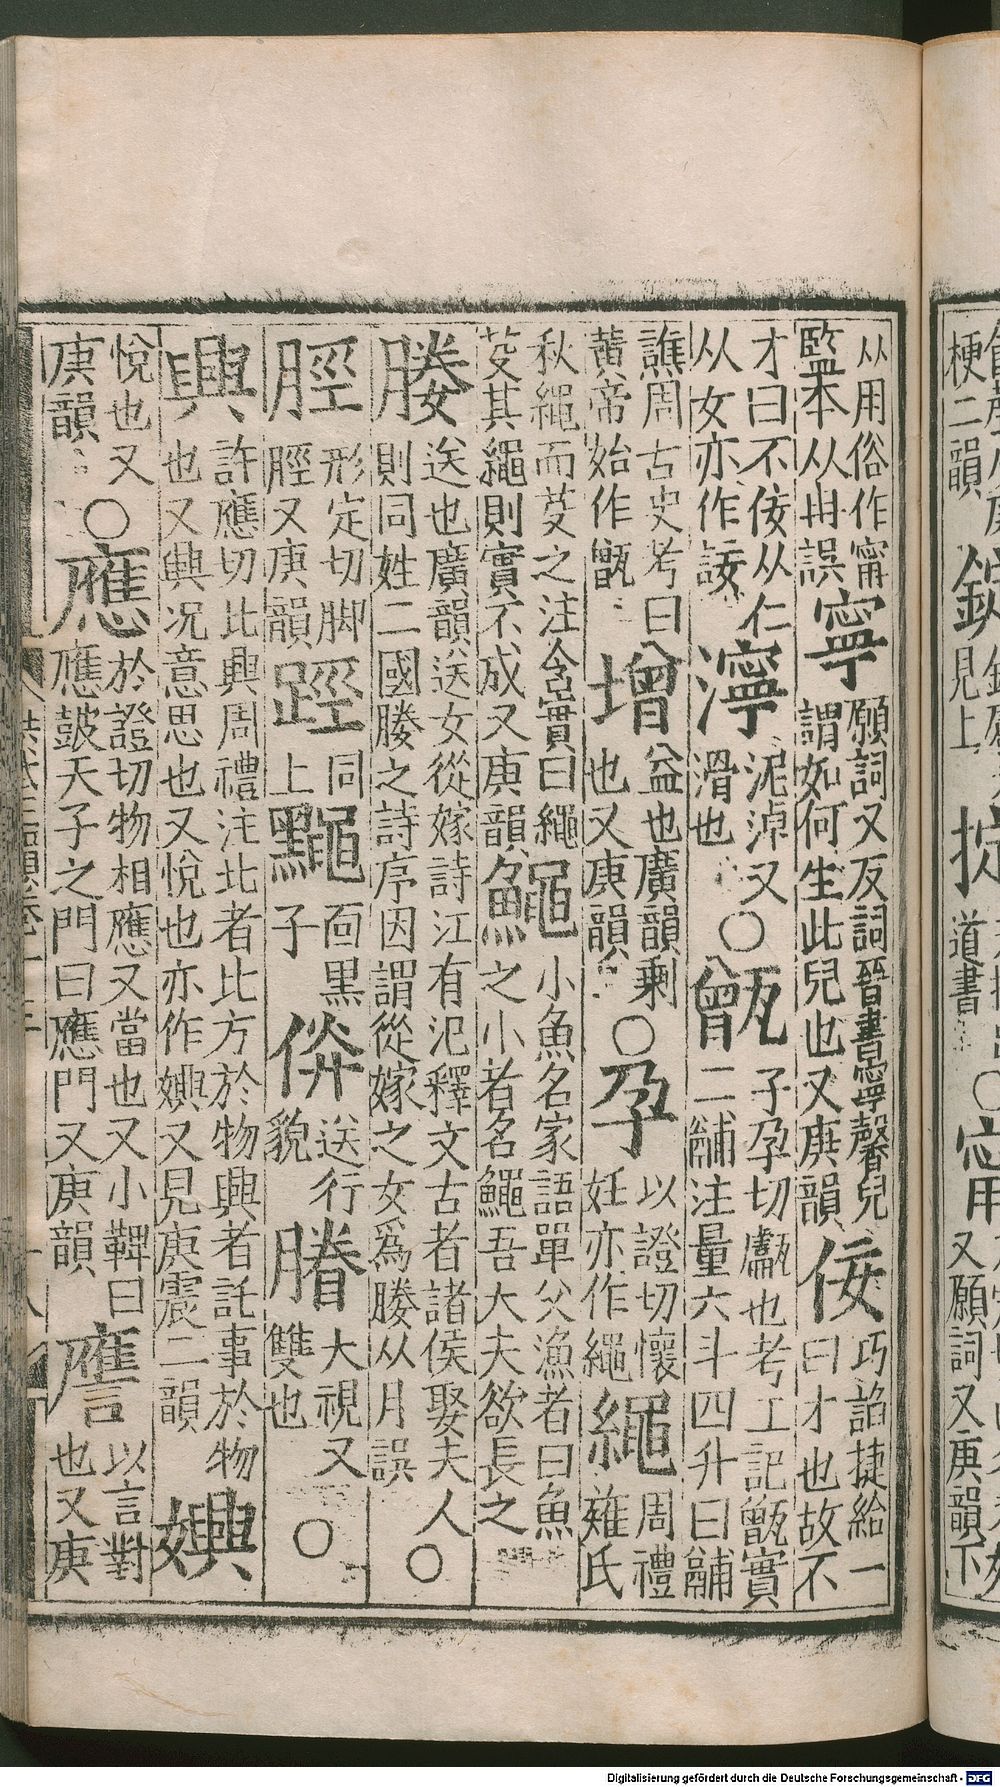 梗二韻
見上
道書
又願詞又庚韻下
从用俗作甯監本从冉誤寧願詞又反詞晉書寧馨兒謂如何生此兒也又庚韻佞巧諂捷給一曰才也故不
才曰不佞从仁从女亦作濘泥淖又滑也○甑子孕切甗也考工記甑實二鬴注量六斗四升曰鬴
譙周古史考曰黃帝始作甑增益也廣韻剩也又庚韻○孕以證切懷妊亦作繩繩周禮薙氏
秋繩而芟之注含實曰繩芟其繩則實不成又庚韻鱦小魚名家語單父漁者曰魚之小者名鱦吾大夫欲長之
媵送也廣韻送女從嫁詩江有汜釋文古者諸侯娶夫人則同姓二國媵之詩序因謂從嫁之女爲媵从月誤○
脛形定切脚脛又庚韻踁同上䵴面黑子倂送行貌大視又雙也○
興許應切比興周禮注比者比方於物興者託事於物也又興况意思也又悅也亦作嬹又見庚震二韻嬹
悅也又庚韻○應於證切物相應又當也又小鞞曰應鼓天子之門曰應門又庚韻譍以言對也又庚
Digitalisierung gefördert durch die Deutsche Forschungsgemeinschaft - DFG